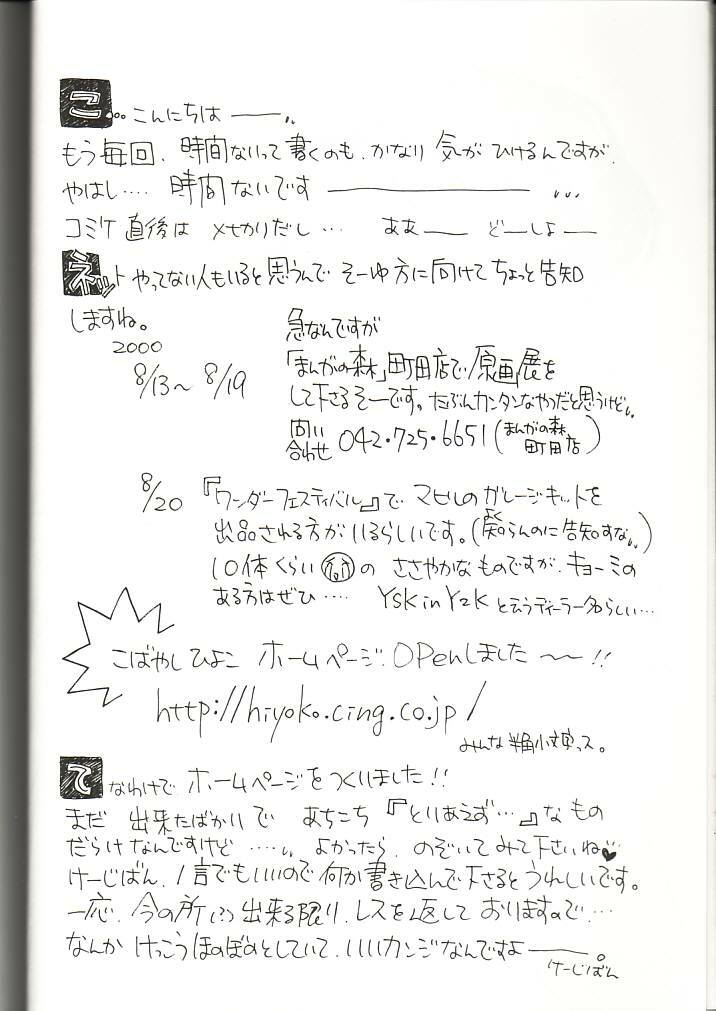 こ… こんにちは ――‥
もう毎回、時間ないって書くのも、かなり気がひけるんですが、
やはし…. 時間ないです ――――― …
コミケ直後は メせかりだし… ああ― どーしよ―
ネット やってない人もいると思うんで そーゆ方に向けてちょっと告知
しますね。
2000
8/13〜 8/19
急なんですが
「まんがの森」町田店で「原画」展を
して下さるそーです。たぶんカンタンなやつだと思うけど‥
問い合わせ 042・725・6651(まんがの森 町田店)
8/20 『ワンダーフェスティバル』で マヒルのガレージキットを
出品される方がいるらしいです。(よく知らんのに告知すな‥)
10体くらい の ささやかなものですが、キョーミの
ある方はぜひ…. YSK in Y2K と云うディーラー名らしい…
こばやしひよこ ホームページ OPenしました 〜〜!!
http://hiyoko.cing.co.jp/
みんな半角小文字っス。
て なわけで ホームページをつくりました!!
まだ 出来たばかりで あちこち『とりあえず…』なもの
だらけなんですけど …‥ よかったら、のぞいてみて下さいね♥
けーじばん、1言でもいいので何か書き込んで下さるとうれしいです。
一応、今の所は 出来る限り、レスを返しておりますので、…
なんか けっこうほのぼのとしていて、いいカンジなんですよ――。
けーじばん